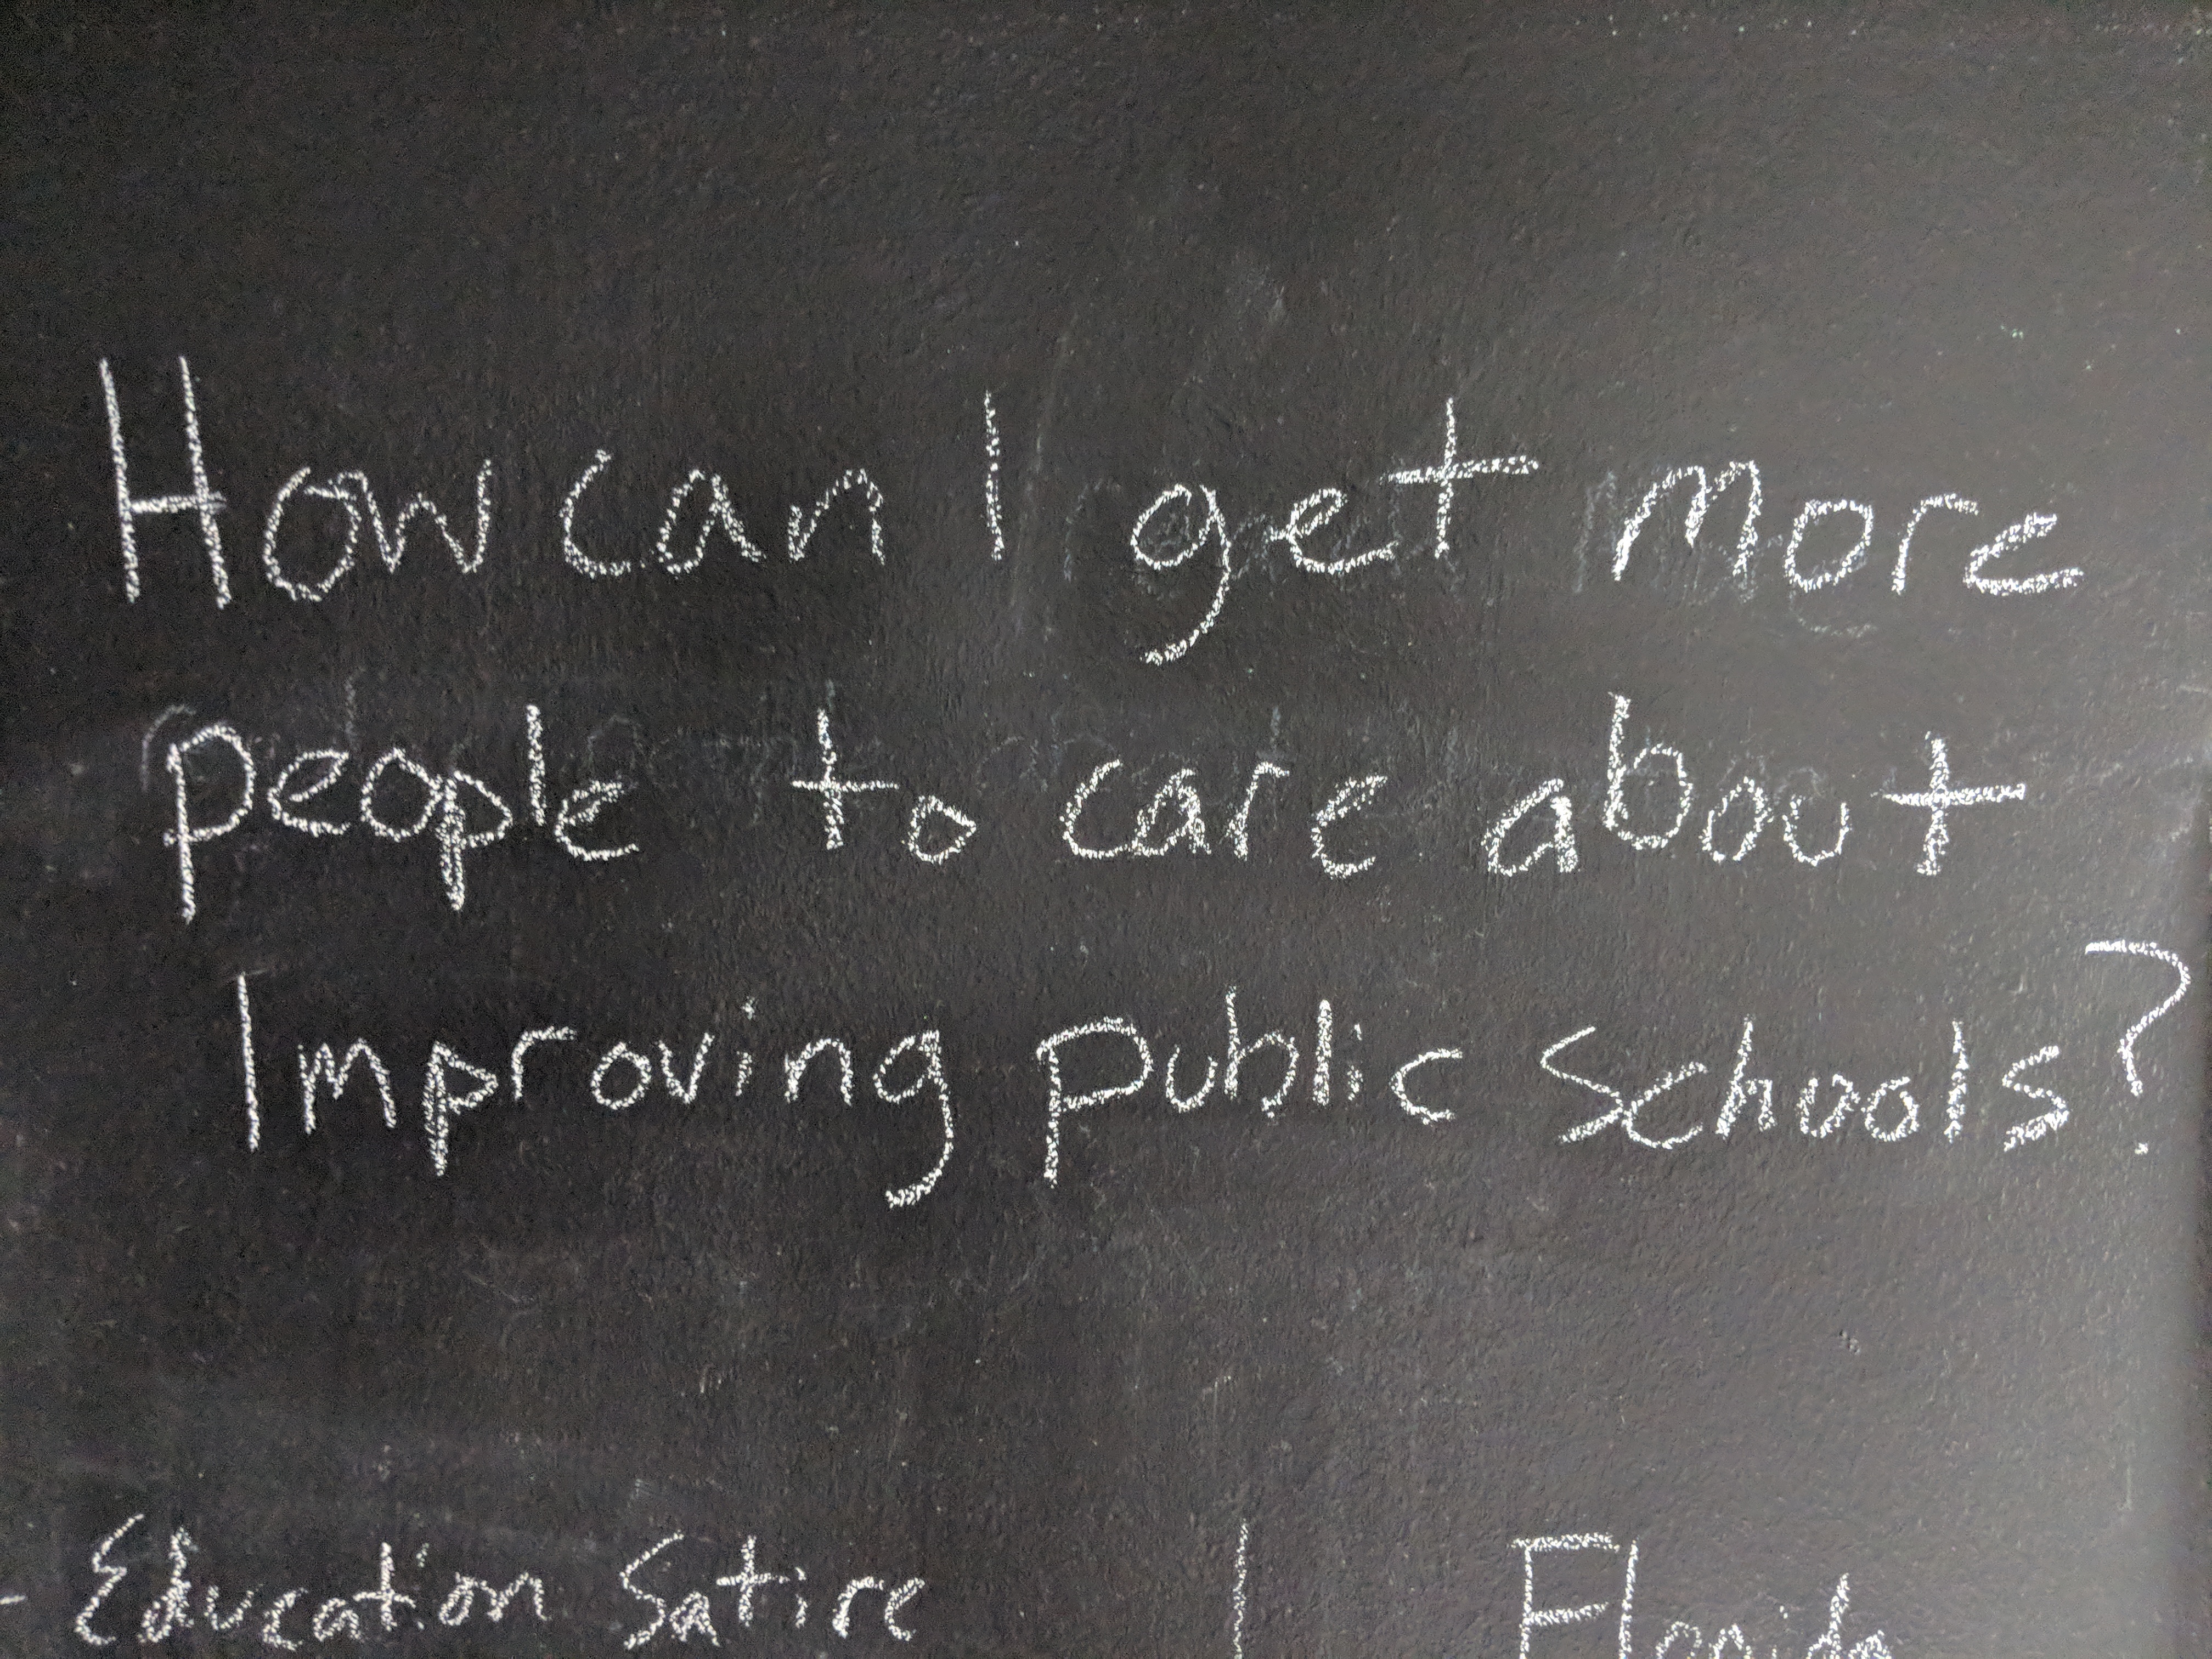 How can I get more
people to care about
Improving public Schools?
- Education Satire | Florida